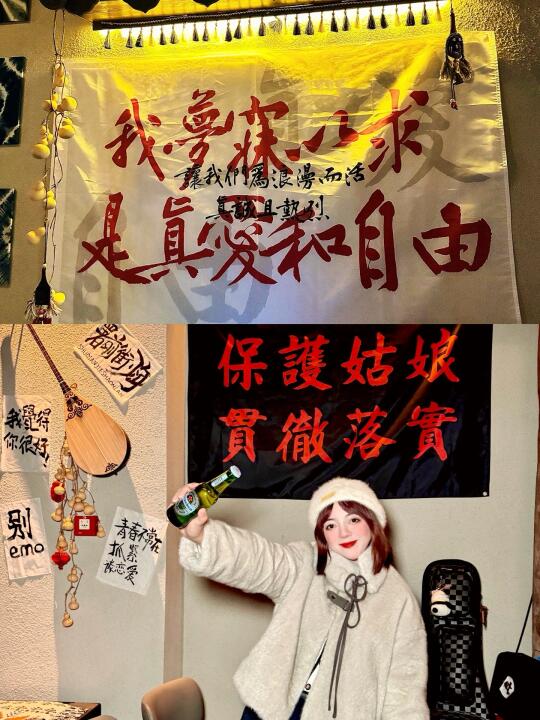 我夢寐以求
讓我們為浪漫而活
真誠且熱烈
是真愛和自由
自由
保護姑娘
貫徹落實
我覺得
你很好!
别
emo
青春不常在
抓緊
談恋爱